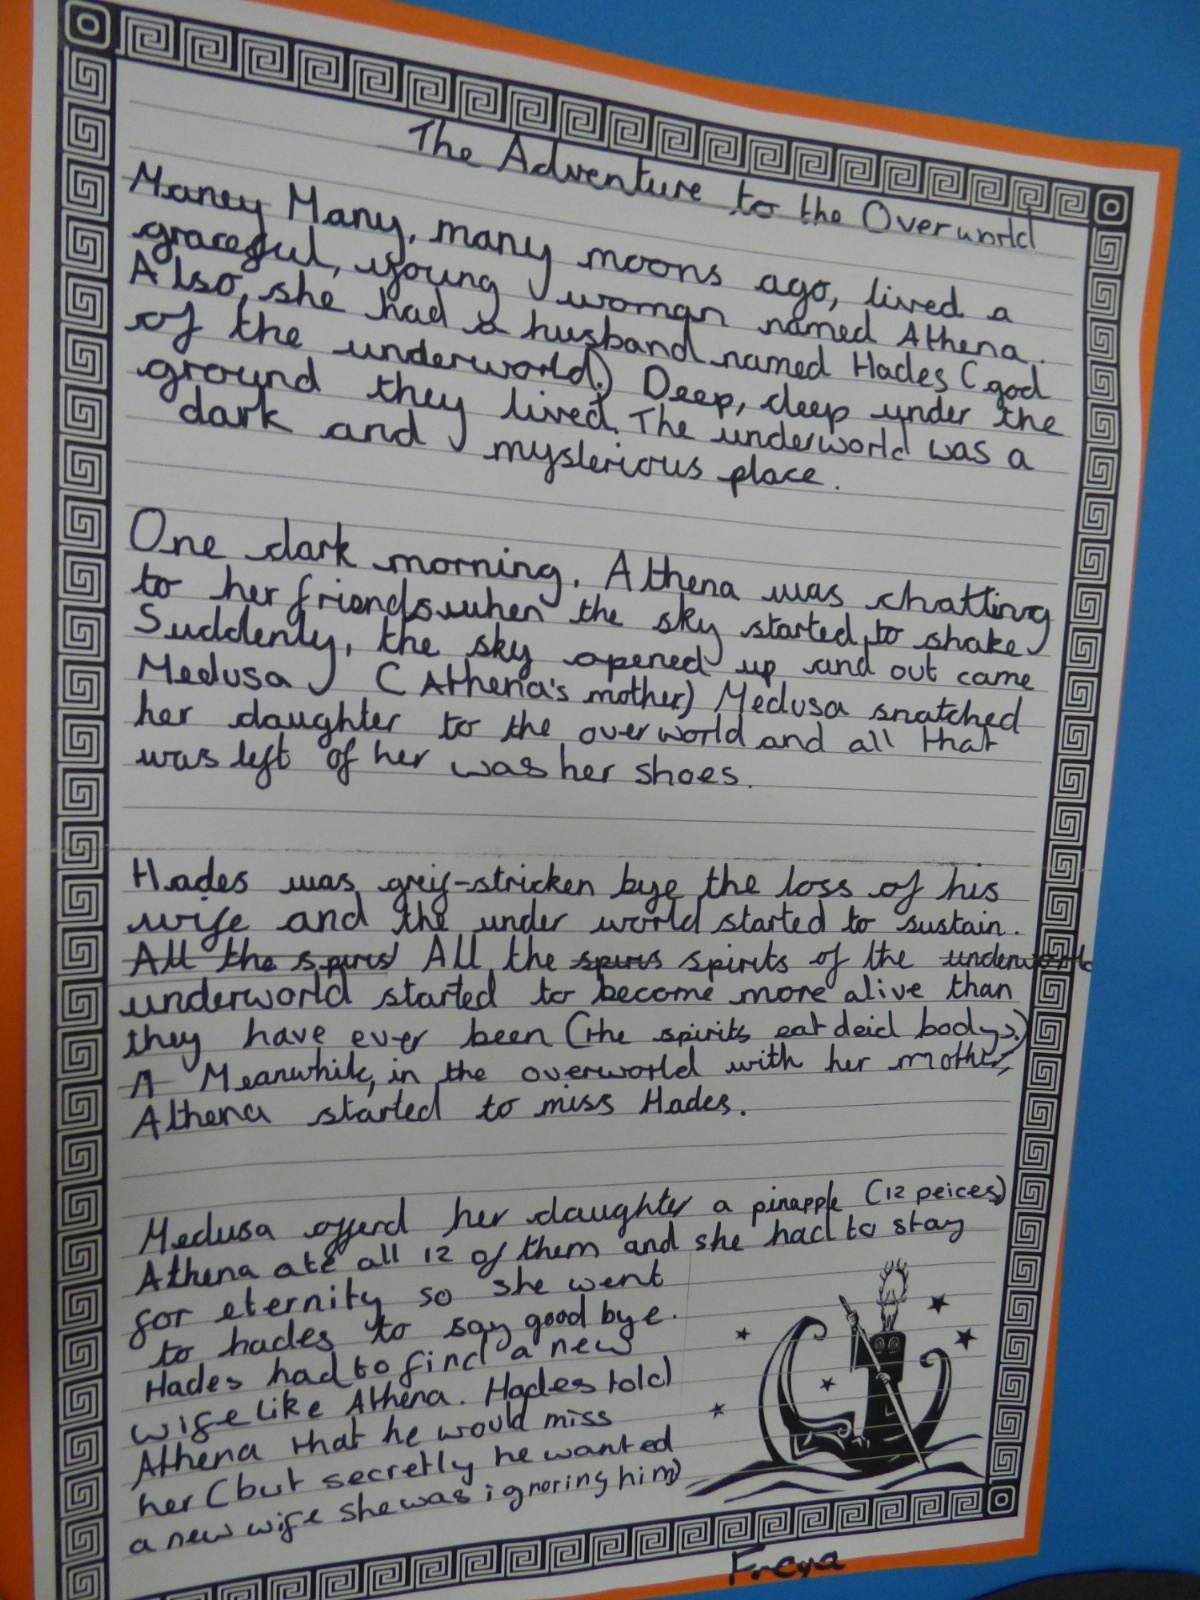 The Adventure to the Overworld
Maney Many, many moons ago, lived a
graceful, young woman named Athena.
Also, she had a husband named Hades (god
of the underworld.) Deep, deep under the
ground they lived. The underworld was a
dark and mysterious place.
One dark morning, Athena was chatting
to her friends when the sky started to shake
Suddenly, the sky opened up and out came
Medusa (Athena's mother) Medusa snatched
her daughter to the overworld and all that
was left of her was her shoes.
Hades was greif-stricken bye the loss of his
wife and the under world started to sustain.
All the spiris All the spiris spirits of the underworld
underworld started to become more alive than
they have ever been (the spirits eat deid bodys.)
A Meanwhile, in the overworld with her mother,
Athena started to miss Hades.
Medusa offerd her daughter a pinapple (12 peices)
Athena ate all 12 of them and she had to stay
for eternity so she went
to hades to say good bye.
Hades had to find a new
wife like Athena. Hades told
Athena that he would miss
her (but secretly he wanted
a new wife she was ignoring him)
Freya